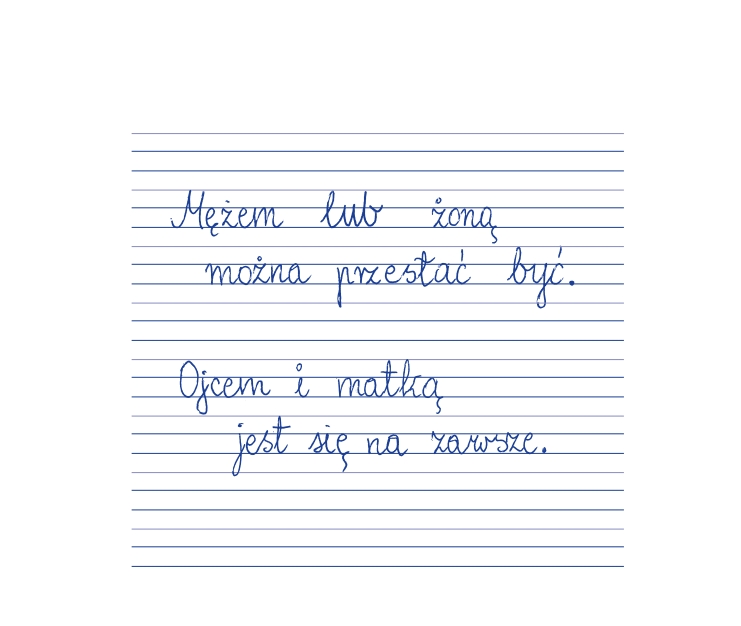 Mężem lub żoną
można przestać być.
Ojcem i matką
jest się na zawsze.